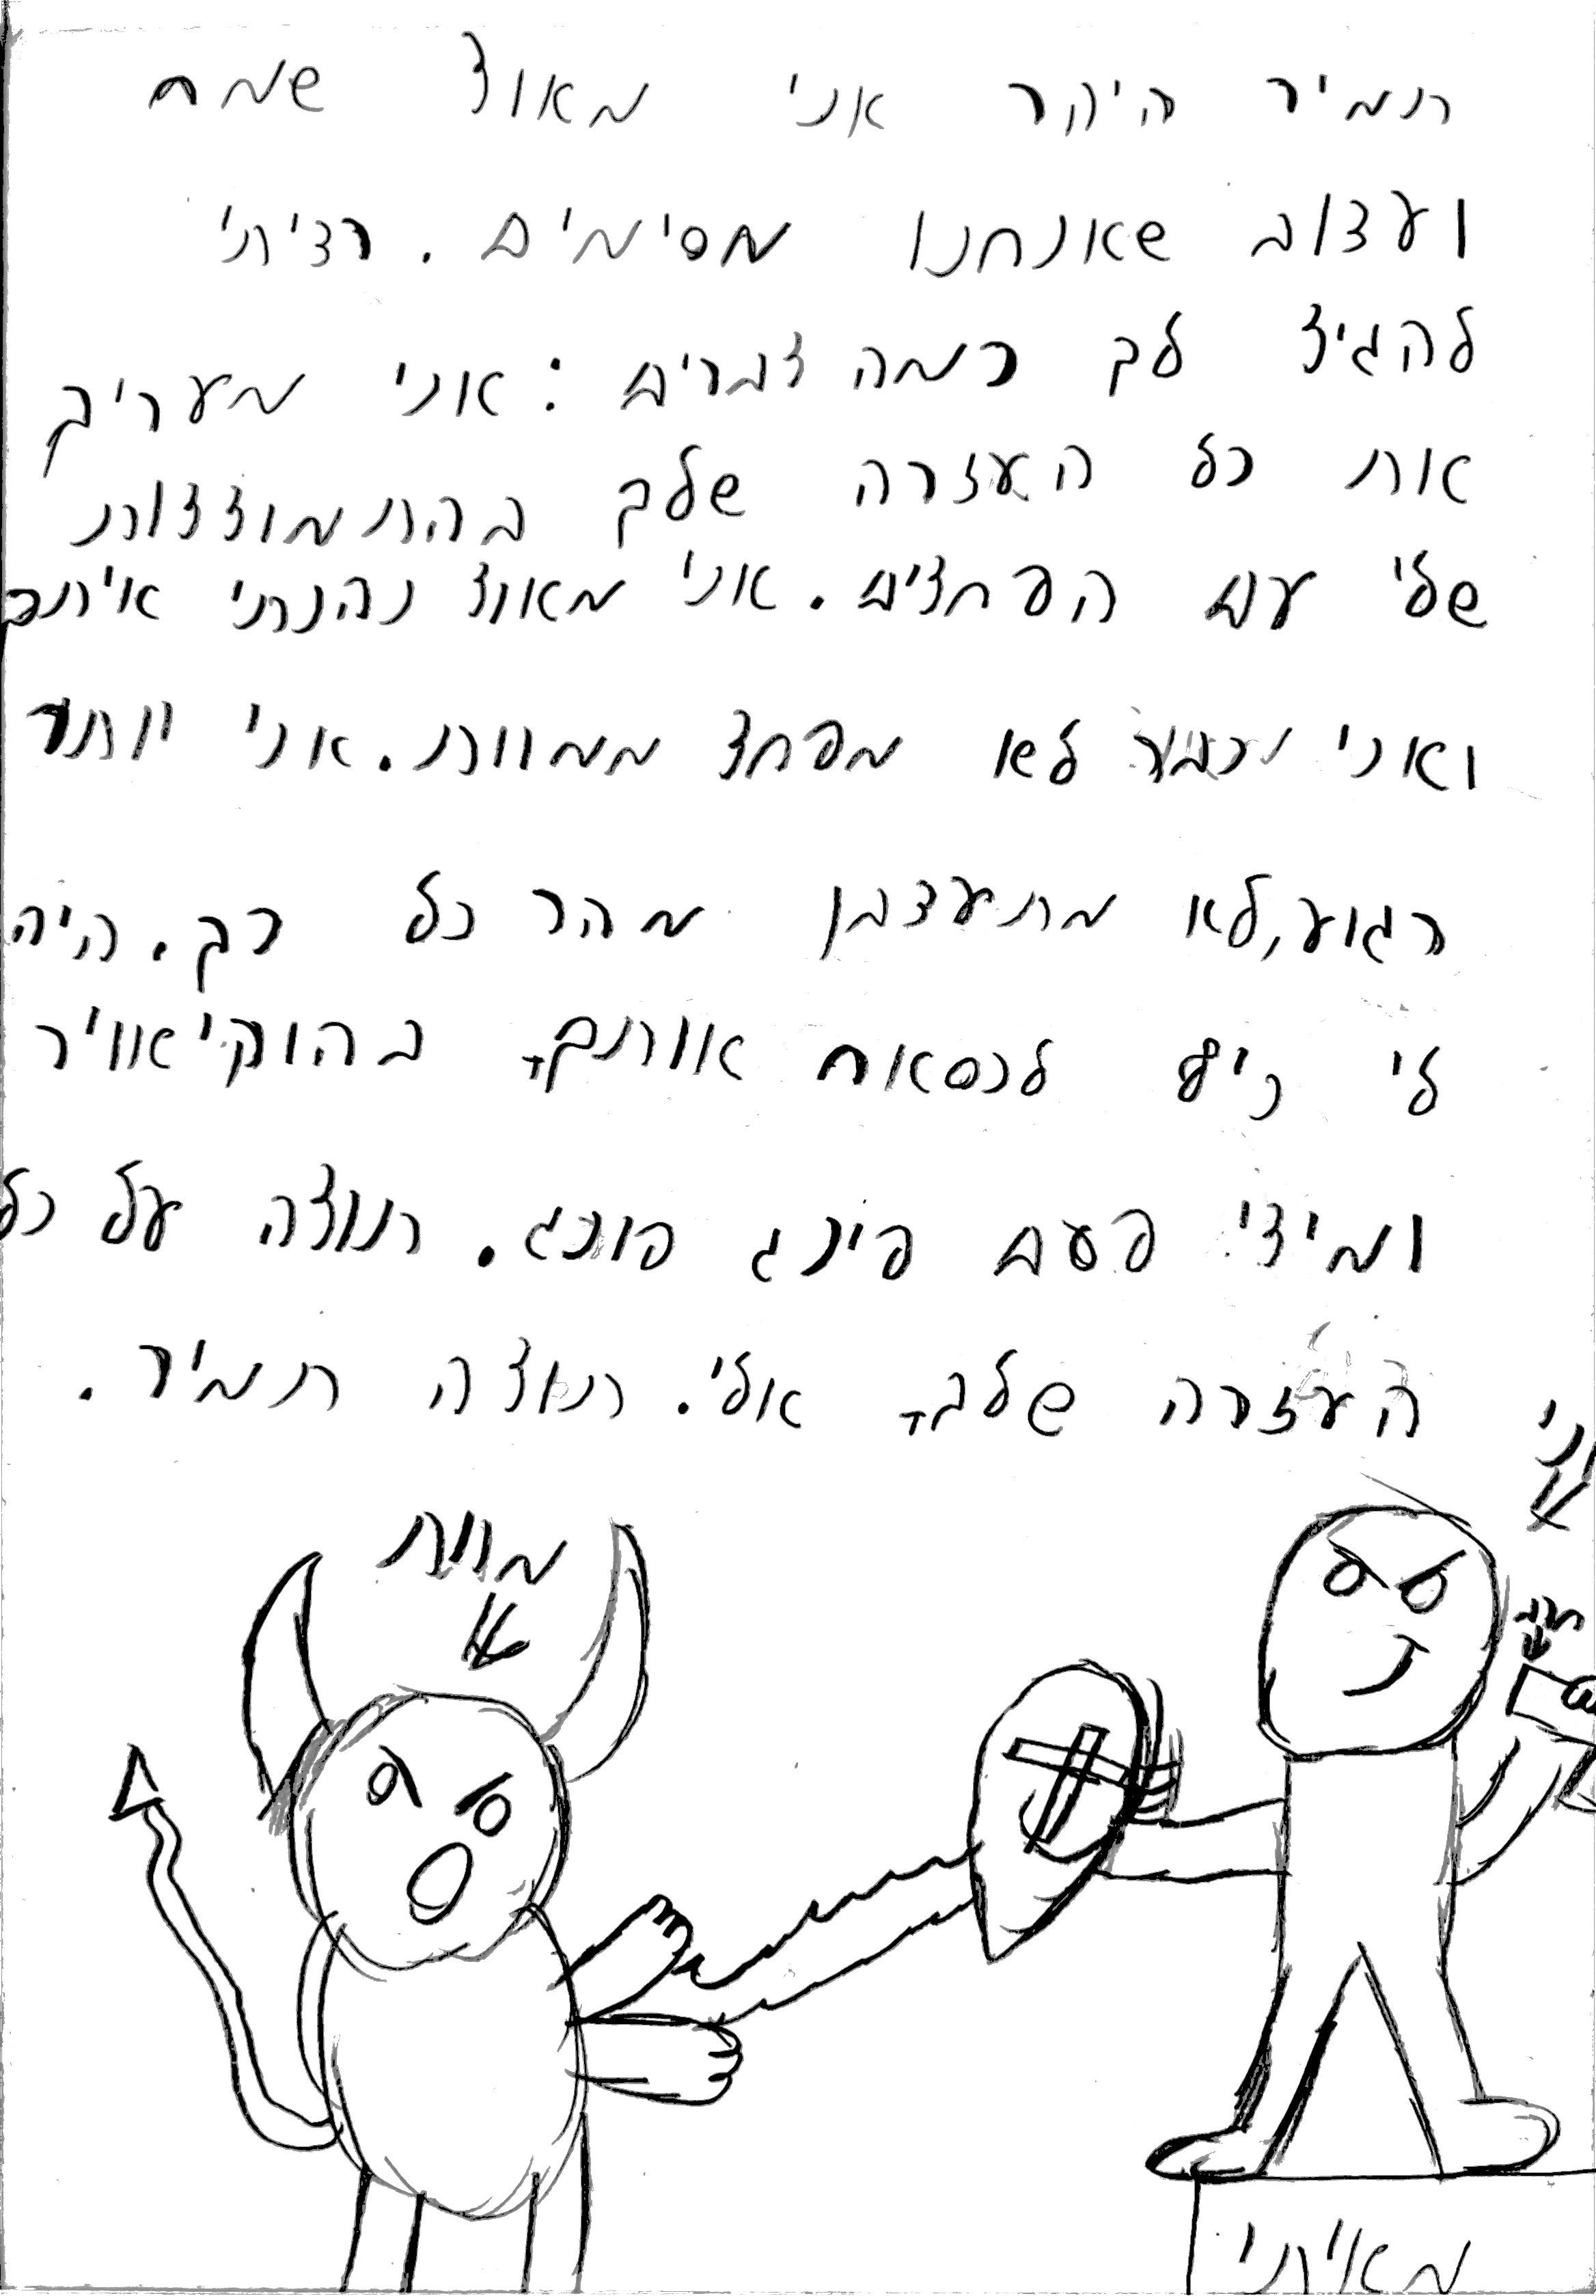 תמיר היקר אני מאוד שמח
ועצוב שאנחנו מסימים. רציתי
להגיד לך כמה דברים: אני מעריך
את כל העזרה שלך בהתמודדות
שלי עם הפחדים. אני מאוד נהנתי איתך
ואני כבר לא מפחד ממוות. אני יותר
רגוע, לא מתעצבן מהר כל כך. היה
לי כיף לכסאח אותך בהוקי אוויר
ומידי פעם פינג פונג. תודה על כל
העזרה שלך אלי. תודה תמיר.
אני
מוות
חרב
מאיתי